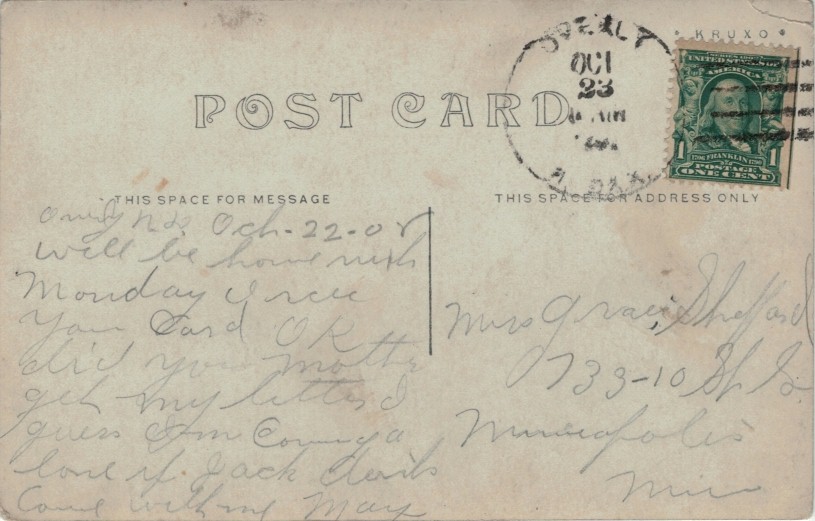 OVERLY
OCT
23
N. DAK.
* KRUXO *
SERIES 1902
UNITED STATES OF
AMERICA
1 1706 FRANKLIN 1790 1
POSTAGE
ONE CENT
POST CARD
THIS SPACE FOR MESSAGE
THIS SPACE FOR ADDRESS ONLY
Oct-22-08
will be home next
Monday I rec
your Card OK
did you mother
get my letter I
guess I-m Coming a
lone if Jack don't
Come with me May
Miss Gracie Sheffard
733-10 St S.
Minneapolis
Minn